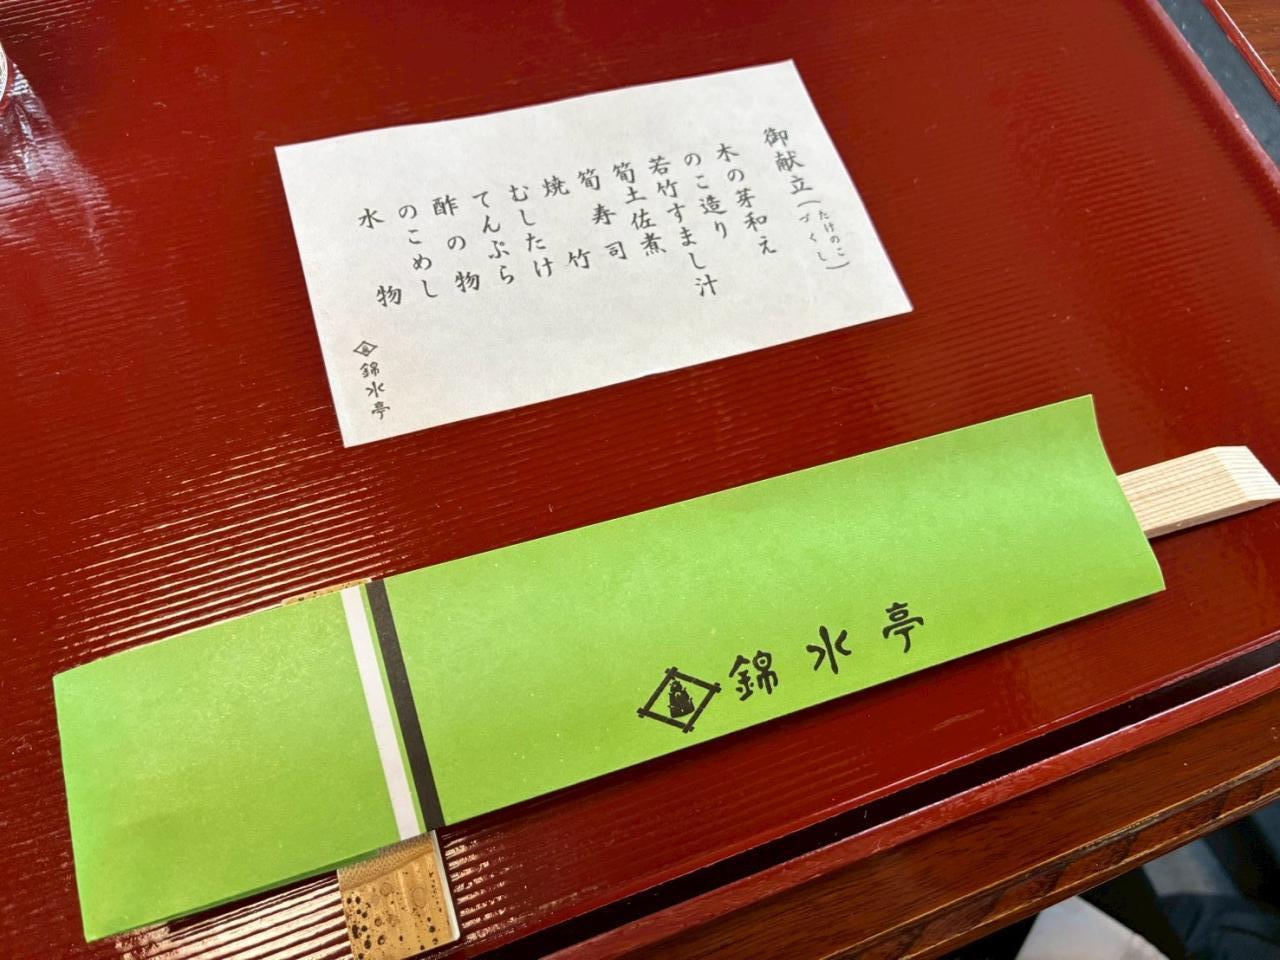 御献立(たけのこづくし)
木の芽和え
のこ造り
若竹すまし汁
筍土佐煮
筍寿司
焼竹
むしたけ
てんぷら
酢の物
のこめし
水物
錦水亭
錦水亭